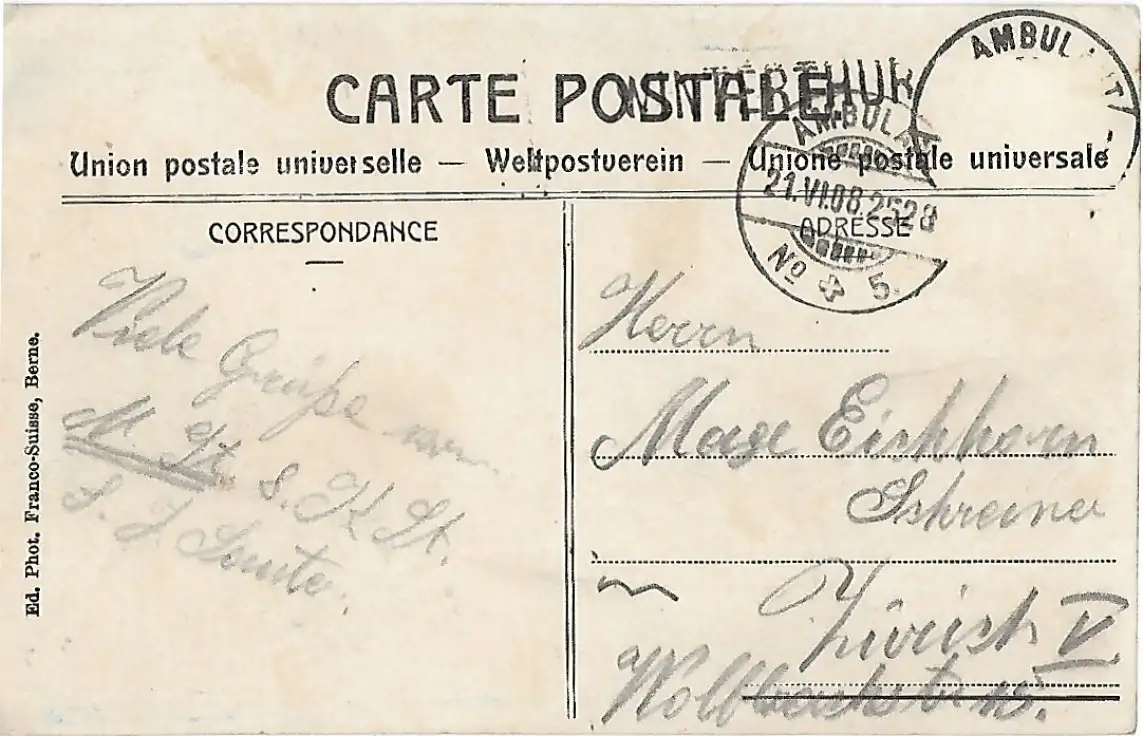 CARTE POSTALE
WINTERTHUR
AMBULANT
AMBULANT
21.VI.08. 2528
No 5.
Union postale universelle — Weltpostverein — Unione postale universale
CORRESPONDANCE
ADRESSE
Viele Grüße von
M. St. s. K. St.
S. J.
Herrn
Eichhorn
Schreiner
in
Zürich V
Wolfbachstr.
Ed. Phot. Franco-Suisse, Berne.